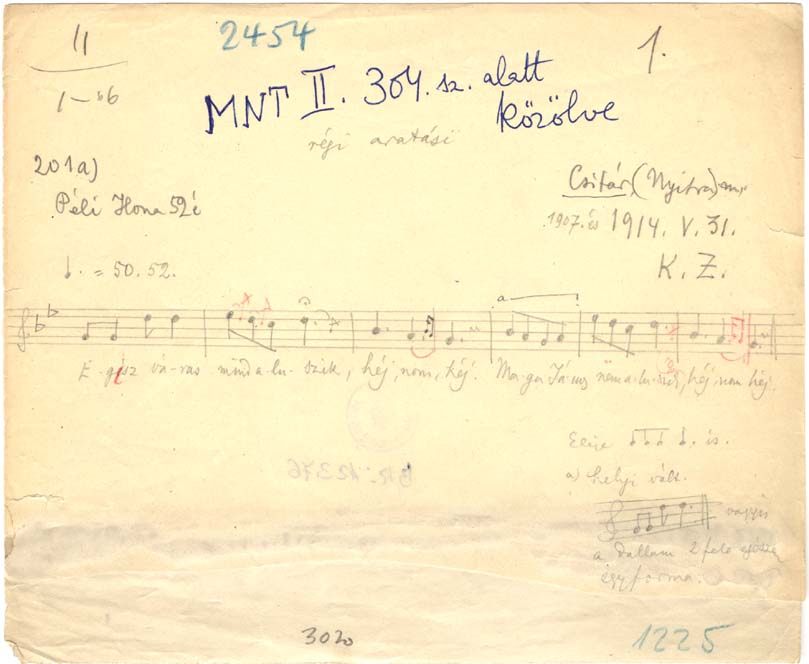 11
2454
1.
1-86
MNT II. 304. sz. alatt
közölve
régi aratási
201a)
Csitár, (Nyitra) m.
Péli Ilona 52 é
1907. és 1914. V. 31.
K. Z.
♩. = 50. 52.
a
E-gész vá-ras mind a-lu-szik, héj, nom, héj. Ma-ga Já-nos nem a-lu-szik, héj, nom héj
Eleje is.
a) helyi vált.
vagyis
a dallam 2 fele egészen
egyforma.
3020
1225